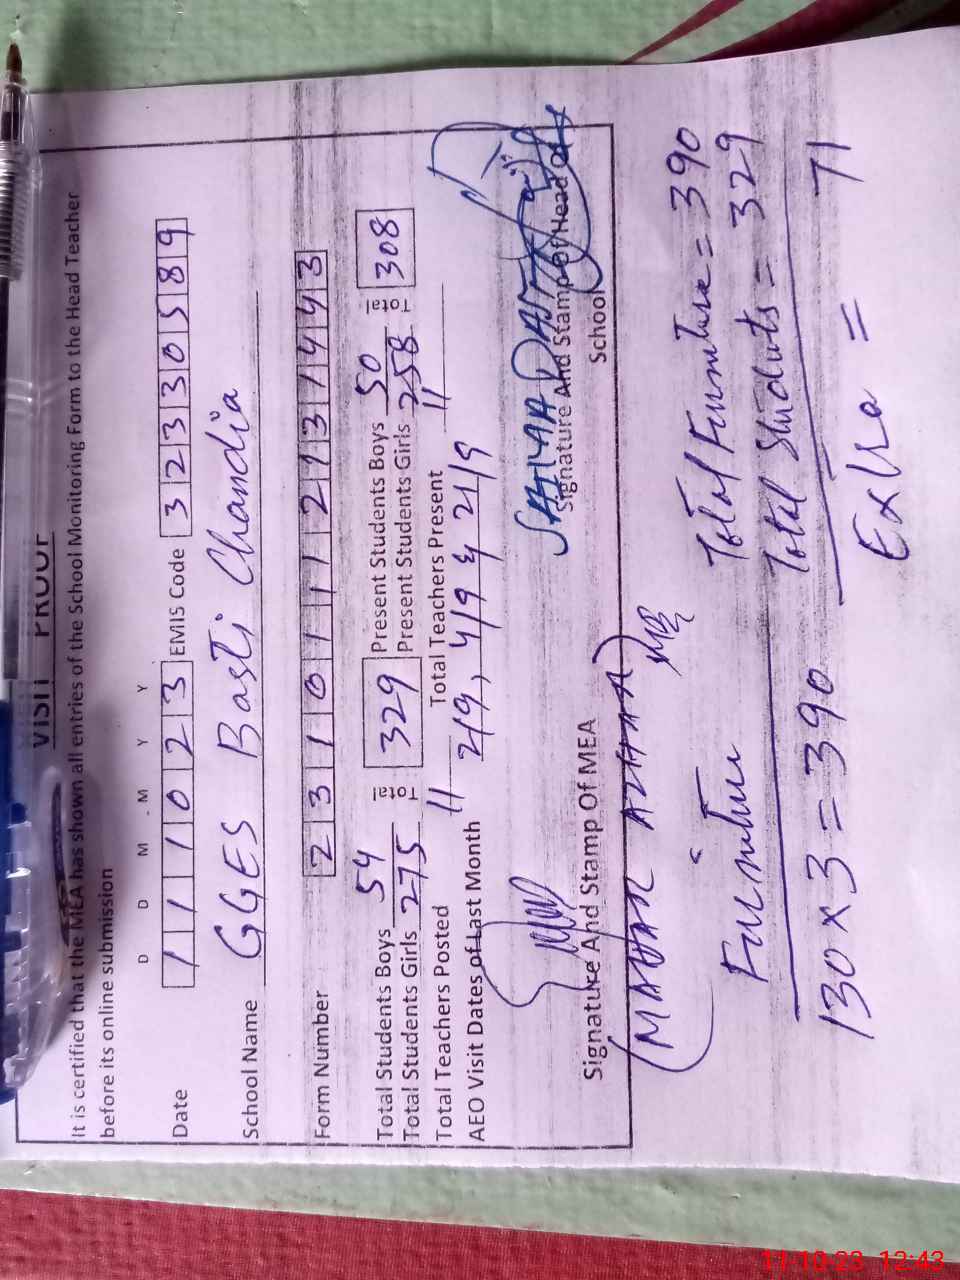 VISIT PROOF
It is certified that the MEA has shown all entries of the School Monitoring Form to the Head Teacher
before its online submission
D D M M Y Y
Date 111023 EMIS Code 32330589
School Name GGES Basti Chandia
Form Number 2310112131443
Total Students Boys 54 Total 329 Present Students Boys 50 Total 308
Total Students Girls 275 Present Students Girls 258
Total Teachers Posted 11 Total Teachers Present 11
AEO Visit Dates of Last Month 2/9, 4/9 & 21/9
Signature And Stamp Of MEA Signature And Stamp Of Head Of
School
Furniture Total Furniture = 390
Total Students = 329
130 x 3 = 390 Extra = 71
11-10-23 12:43